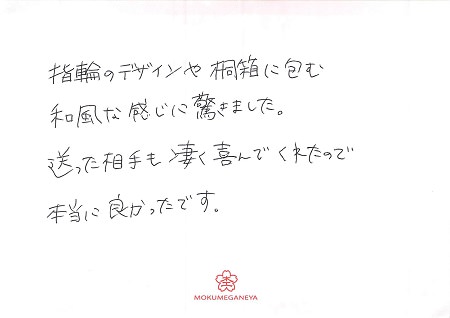 指輪のデザインや桐箱に包む
和風な感じに驚きました。
送った相手も凄く喜んでくれたので
本当に良かったです。
MOKUMEGANEYA